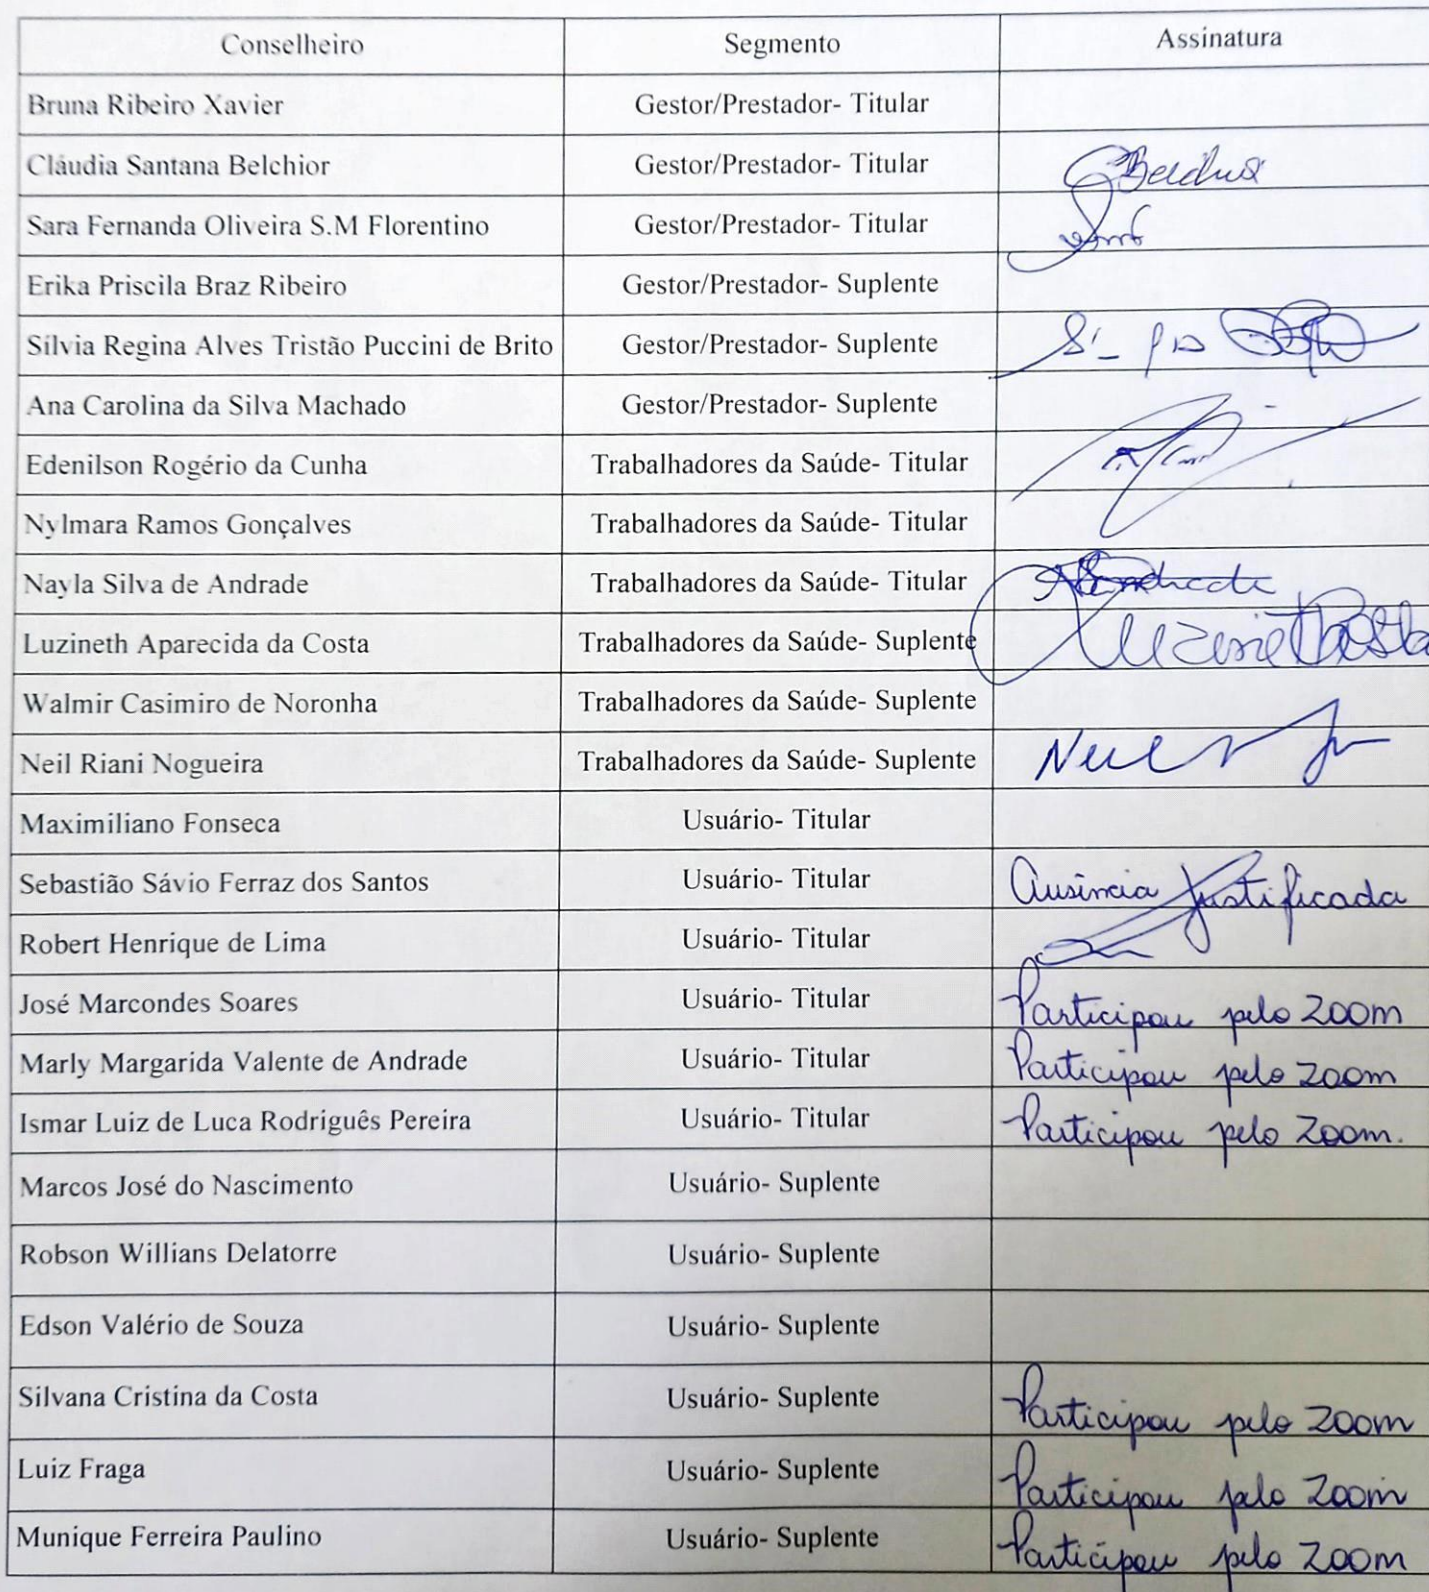 Conselheiro Segmento Assinatura
Bruna Ribeiro Xavier Gestor/Prestador- Titular
Cláudia Santana Belchior Gestor/Prestador- Titular
Sara Fernanda Oliveira S.M Florentino Gestor/Prestador- Titular
Erika Priscila Braz Ribeiro Gestor/Prestador- Suplente
Sílvia Regina Alves Tristão Puccini de Brito Gestor/Prestador- Suplente
Ana Carolina da Silva Machado Gestor/Prestador- Suplente
Edenilson Rogério da Cunha Trabalhadores da Saúde- Titular
Nylmara Ramos Gonçalves Trabalhadores da Saúde- Titular
Nayla Silva de Andrade Trabalhadores da Saúde- Titular
Luzineth Aparecida da Costa Trabalhadores da Saúde- Suplente
Walmir Casimiro de Noronha Trabalhadores da Saúde- Suplente
Neil Riani Nogueira Trabalhadores da Saúde- Suplente
Maximiliano Fonseca Usuário- Titular
Sebastião Sávio Ferraz dos Santos Usuário- Titular Ausência Justificada
Robert Henrique de Lima Usuário- Titular
José Marcondes Soares Usuário- Titular Participou pelo Zoom
Marly Margarida Valente de Andrade Usuário- Titular Participou pelo Zoom
Ismar Luiz de Luca Rodriguês Pereira Usuário- Titular Participou pelo Zoom.
Marcos José do Nascimento Usuário- Suplente
Robson Willians Delatorre Usuário- Suplente
Edson Valério de Souza Usuário- Suplente
Silvana Cristina da Costa Usuário- Suplente Participou pelo Zoom
Luiz Fraga Usuário- Suplente Participou pelo Zoom
Munique Ferreira Paulino Usuário- Suplente Participou pelo Zoom